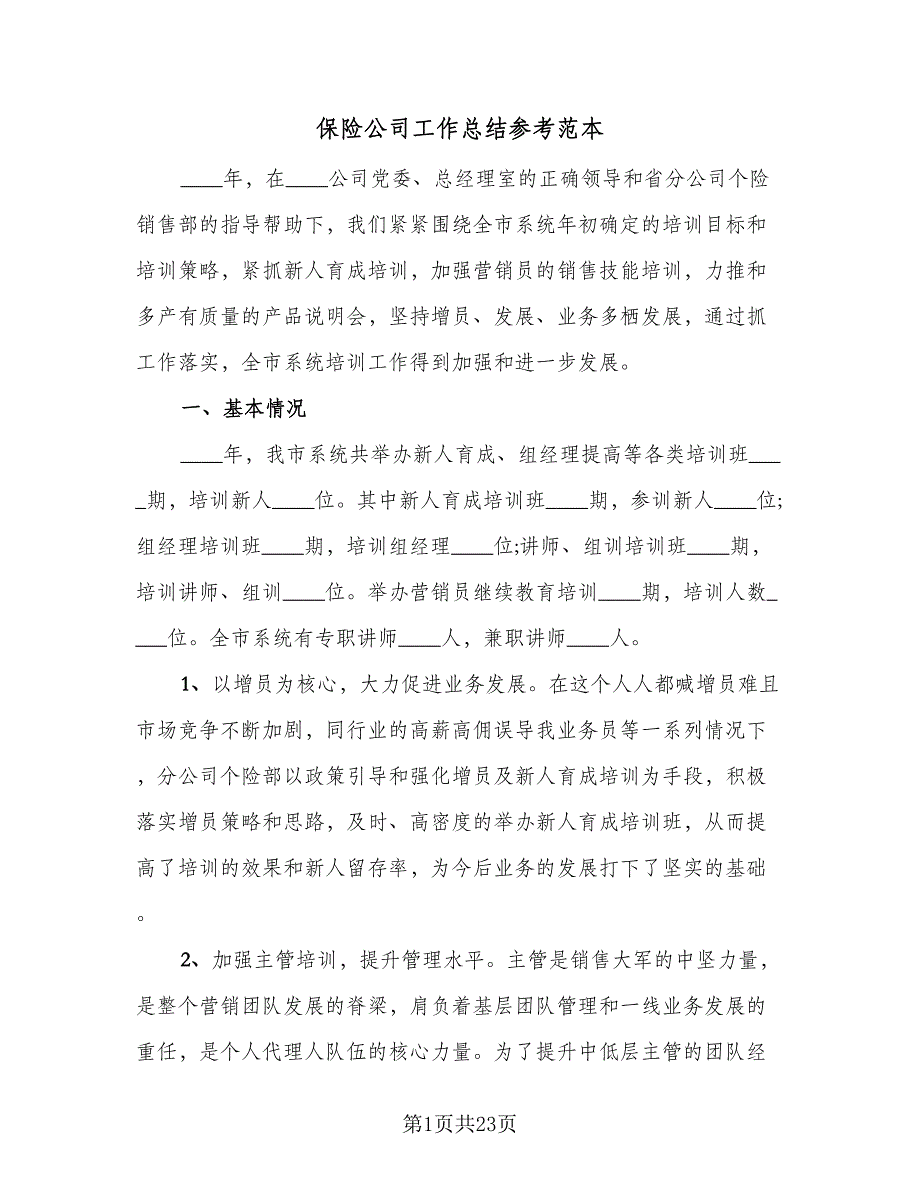 保险公司工作总结参考范本
____年，在____公司党委、总经理室的正确领导和省分公司个险
销售部的指导帮助下，我们紧紧围绕全市系统年初确定的培训目标和
培训策略，紧抓新人育成培训，加强营销员的销售技能培训，力推和
多产有质量的产品说明会，坚持增员、发展、业务多栖发展，通过抓
工作落实，全市系统培训工作得到加强和进一步发展。
一、基本情况
____年，我市系统共举办新人育成、组经理提高等各类培训班___
_期，培训新人____位。其中新人育成培训班____期，参训新人____位;
组经理培训班____期，培训组经理____位;讲师、组训培训班____期，
培训讲师、组训____位。举办营销员继续教育培训____期，培训人数_
___位。全市系统有专职讲师____人，兼职讲师____人。
1、以增员为核心，大力促进业务发展。在这个人人都喊增员难且
市场竞争不断加剧，同行业的高薪高佣误导我业务员等一系列情况下
，分公司个险部以政策引导和强化增员及新人育成培训为手段，积极
落实增员策略和思路，及时、高密度的举办新人育成培训班，从而提
高了培训的效果和新人留存率，为今后业务的发展打下了坚实的基础
。
2、加强主管培训，提升管理水平。主管是销售大军的中坚力量，
是整个营销团队发展的脊梁，肩负着基层团队管理和一线业务发展的
重任，是个人代理人队伍的核心力量。为了提升中低层主管的团队经
第1页共23页